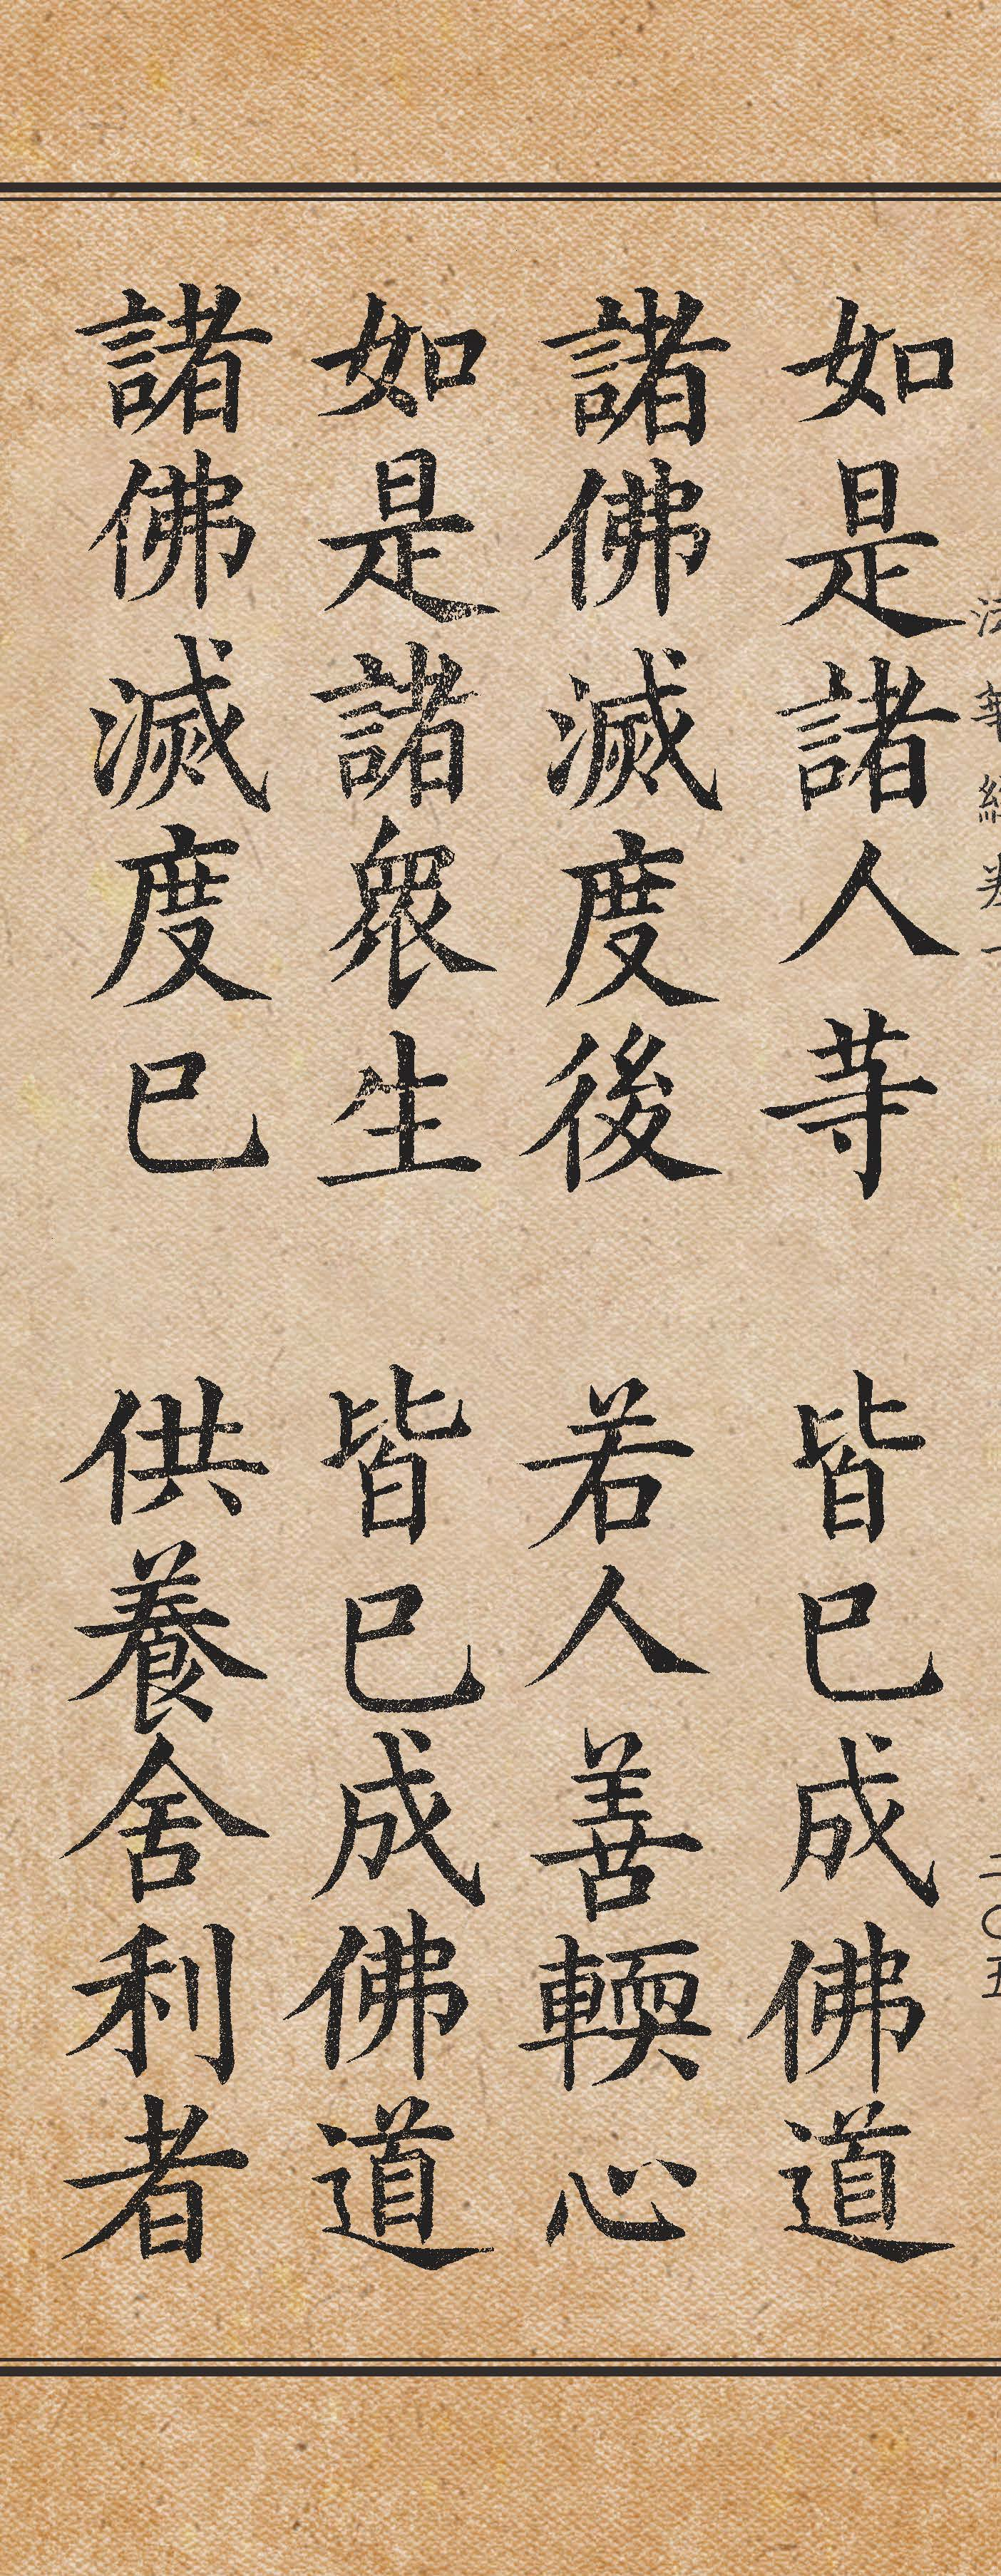 法華經卷一
二〇五
如是諸人荨 皆已成佛道
諸佛滅度後 若人善輭心
如是諸衆生 皆已成佛道
諸佛滅度已 供養舍利者